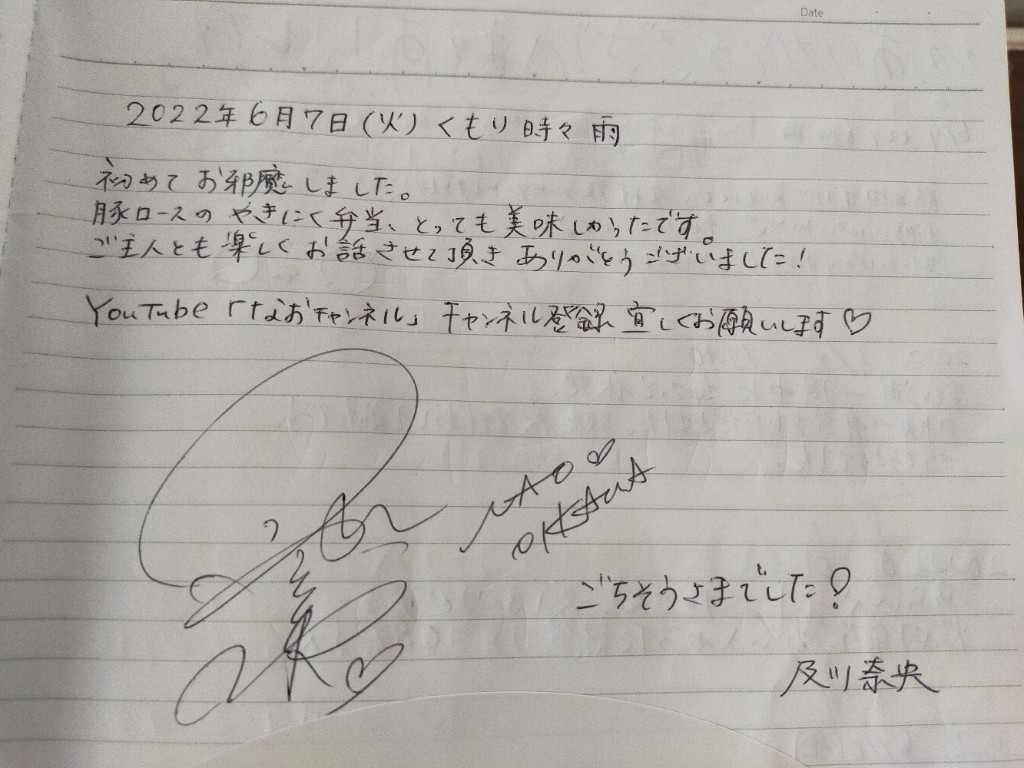 Date
2022年6月7日(火)くもり時々雨
初めてお邪魔しました。
豚ロースのやきにく弁当、とっても美味しかったです。
ご主人とも楽しくお話させて頂きありがとうございました!
YouTube「なおチャンネル」チャンネル登録宜しくお願いします♡
NAO♡
OIKAWA
ごちそうさまでした!
及川奈央